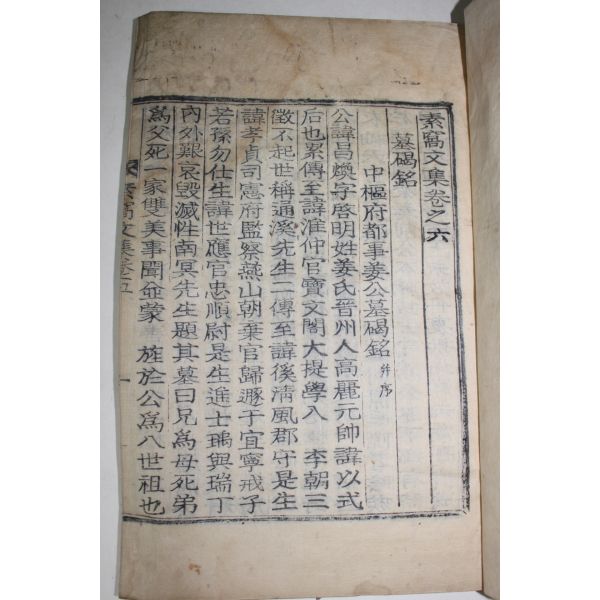 素窩文集卷之六
墓碣銘
中樞府都事姜公墓碣銘 幷序
公諱昌煥字啓明姓姜氏晉州人高麗元帥諱以式
后也累傳至諱淮仲官寶文閣大提學入 李朝三
徵不起世稱通溪先生二傳至諱徯淸風郡守是生
諱孝貞司憲府監察燕山朝棄官歸遯于宜寧戒子
若孫勿仕生諱世應官忠順尉是生進士瑀與瑞丁
內外艱哀毀滅性南冥先生題其墓曰兄爲母死弟
爲父死一家雙美事聞並蒙 旌於公爲八世祖也
素窩文集卷五 一